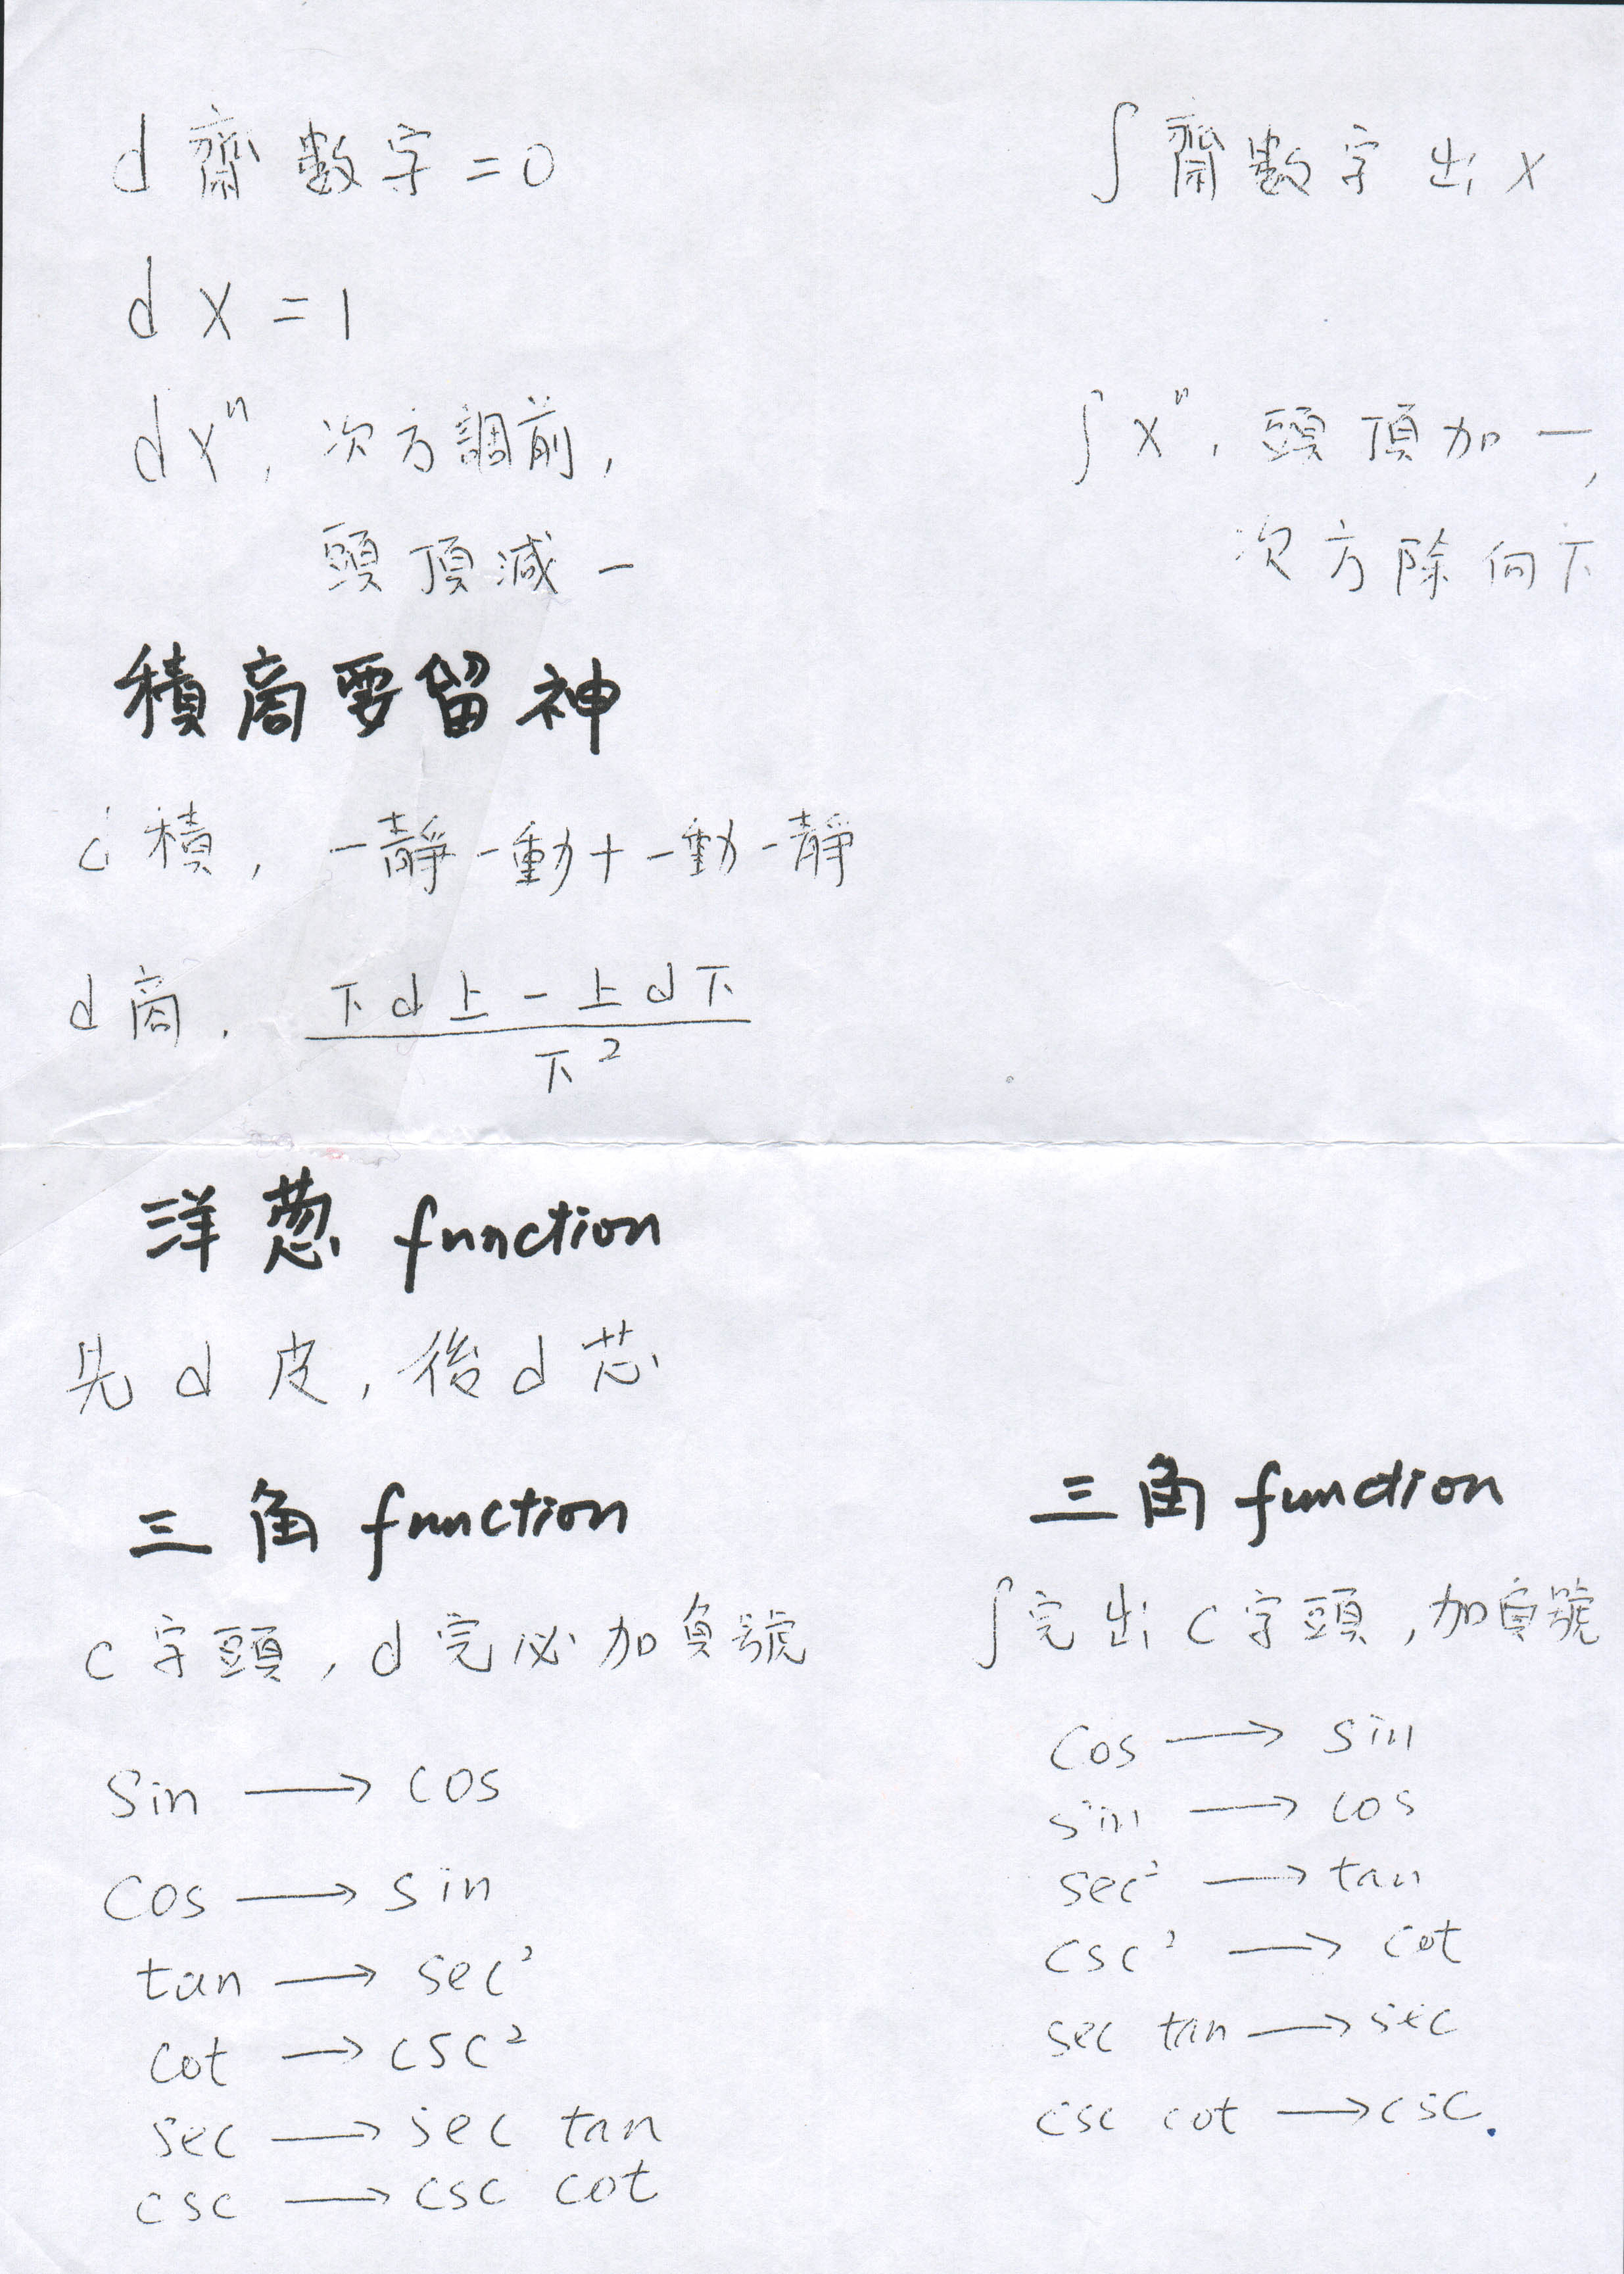 d 齋數字 = 0
∫ 齋數字出 x
d x = 1
dxⁿ, 次方調前,
頭頂減一
∫ xⁿ, 頭頂加一,
次方除向下
積商要留神
d積, 一靜一動+一動一靜
d商, 下d上-上d下
下²
洋葱 function
先 d 皮, 後 d 芯
三角 function
c字頭, d完必加負號
sin → cos
cos → sin
tan → sec²
cot → csc²
sec → sec tan
csc → csc cot
三角 function
∫完出c字頭, 加負號
cos → sin
sin → cos
sec² → tan
csc² → cot
sec tan → sec
csc cot → csc.